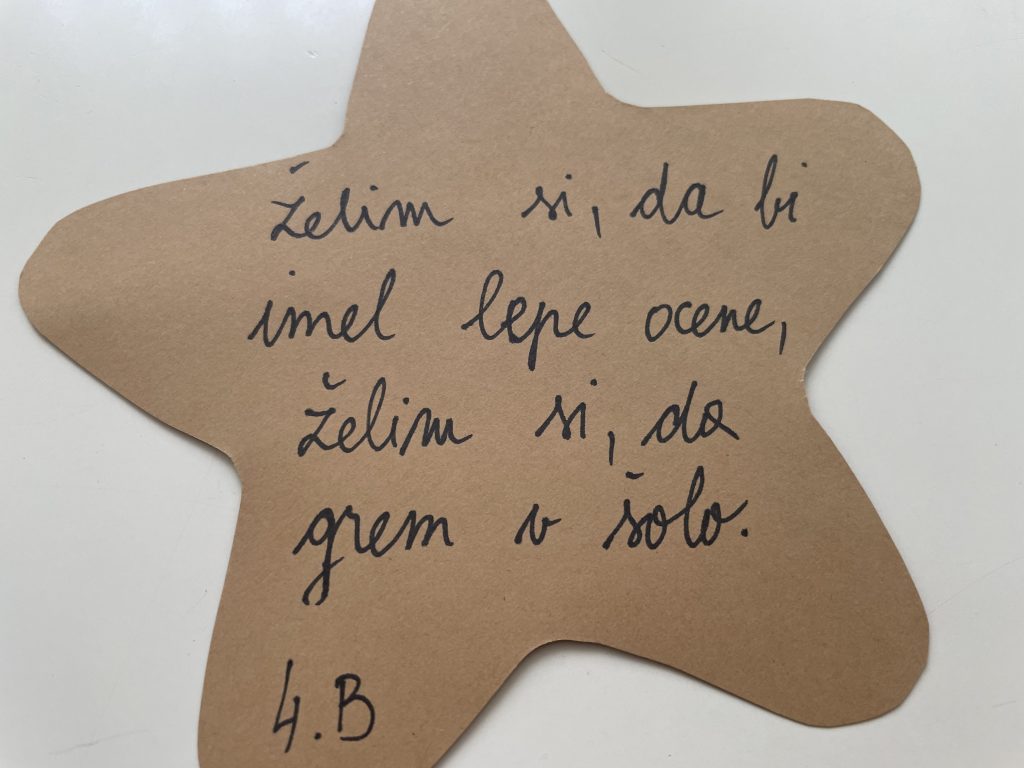 želim si, da bi
imel lepe ocene,
želim si, da
grem v šolo.
4.B